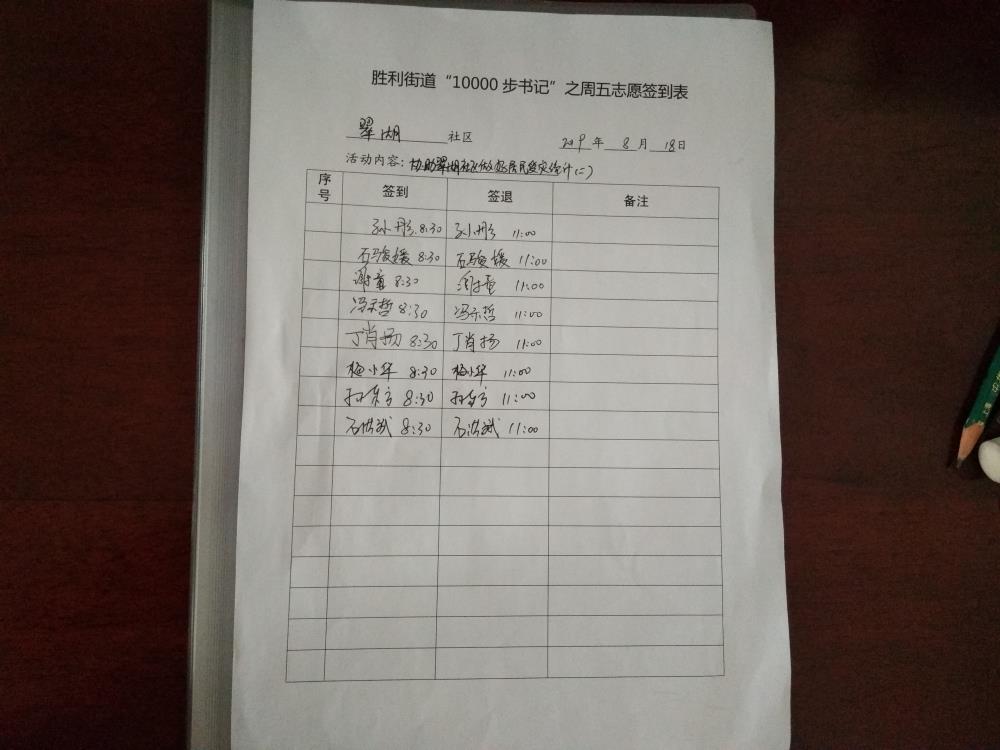 胜利街道“10000步书记”之周五志愿签到表
翠湖 社区 2019年 8月 18日
活动内容：协助翠湖社区做好居民受灾统计(二)
序号 签到 签退 备注
孙彤 8:30 孙彤 11:00
石骏媛 8:30 石骏媛 11:00
谢童 8:30 谢童 11:00
冯示哲 8:30 冯示哲 11:00
丁肖扬 8:30 丁肖扬 11:00
梅小华 8:30 梅小华 11:00
8:30 11:00
石洪斌 8:30 石洪斌 11:00